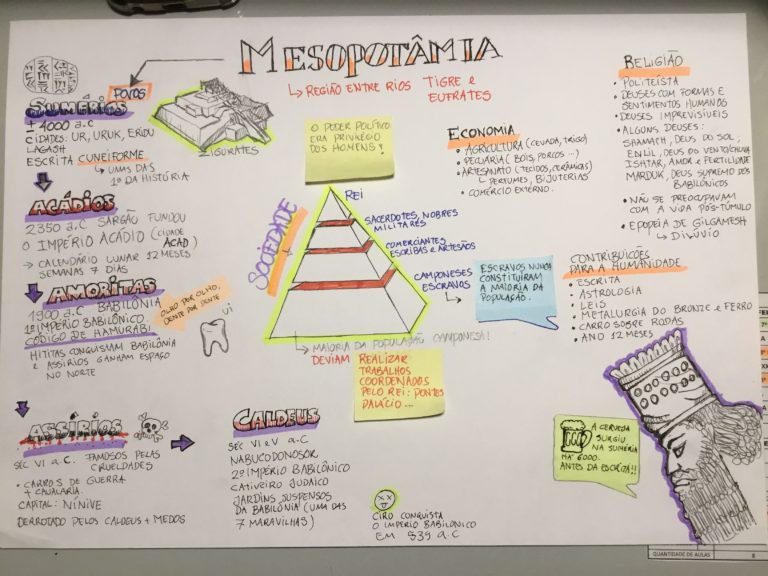 MESOPOTÂMIA
↳ REGIÃO ENTRE RIOS TIGRE e
EUFRATES
POVOS
SUMÉRIOS
± 4000 a.C
CIDADES: UR, URUK, ERIDU
LAGASH
ESCRITA CUNEIFORME
↳ UMAS DAS
1ª DA HISTÓRIA
ZIGURATES
ACÁDIOS
2350 a.C SARGÃO FUNDOU
O IMPÉRIO ACÁDIO (CIDADE
ACAD)
→ CALENDÁRIO LUNAR 12 MESES
SEMANAS 7 DIAS
AMORITAS
1900 a.C BABILÔNIA
1º IMPÉRIO BABILÔNICO
CÓDIGO DE HAMURABI
HITITAS CONQUISTAM BABILÔNIA
e ASSÍRIOS GANHAM ESPAÇO
NO NORTE
OLHO POR OLHO,
DENTE POR DENTE
UI
ASSÍRIOS
SÉC VI a.C. FAMOSOS PELAS
CRUELDADES
• CARROS DE GUERRA
+ CAVALARIA.
CAPITAL: NÍNIVE
DERROTADO PELOS CALDEUS + MEDOS
CALDEUS
SÉC VI e V a.C
NABUCODONOSOR
2º IMPÉRIO BABILÔNICO
CATIVEIRO JUDAICO
JARDINS SUSPENSOS
DA BABILÔNIA (UMA DAS
7 MARAVILHAS)
CIRO CONQUISTA
O IMPÉRIO BABILÔNICO
EM 539 a.C
O PODER POLÍTICO
ERA PRIVILÉGIO
DOS HOMENS!
SOCIEDADE
REI
SACERDOTES, NOBRES
MILITARES
COMERCIANTES
ESCRIBAS e ARTESÃOS
CAMPONESES
ESCRAVOS
ESCRAVOS NUNCA
CONSTITUÍRAM
A MAIORIA DA
POPULAÇÃO.
↳ MAIORIA DA POPULAÇÃO CAMPONESA!
DEVIAM REALIZAR
TRABALHOS
COORDENADOS
PELO REI: PONTES
PALÁCIO...
ECONOMIA
• AGRICULTURA (CEVADA, TRIGO)
• PECUÁRIA (BOIS, PORCOS ...)
• ARTESANATO (TECIDOS, CERÂMICAS)
↳ PERFUMES, BIJUTERIAS
• COMÉRCIO EXTERNO.
RELIGIÃO
• POLITEÍSTA
• DEUSES COM FORMAS E
SENTIMENTOS HUMANOS
• DEUSES IMPREVISÍVEIS
• ALGUNS DEUSES:
SHAMASH, DEUS DO SOL,
ENLIL, DEUS DO VENTO/CHUVA
ISHTAR, AMOR e FERTILIDADE
MARDUK, DEUS SUPREMO DOS
BABILÔNICOS
• NÃO SE PREOCUPAVAM
COM A VIDA PÓS-TÚMULO
• EPOPEIA DE GILGAMESH
↳ DILÚVIO
CONTRIBUIÇÕES
PARA A HUMANIDADE
• ESCRITA
• ASTROLOGIA
• LEIS
• METALURGIA DO BRONZE e FERRO
• CARRO SOBRE RODAS
• ANO 12 MESES
A CERVEJA
SURGIU
NA SUMÉRIA
HÁ 6000.
ANTES DA ESCRITA!!
QUANTIDADE DE AULAS
8